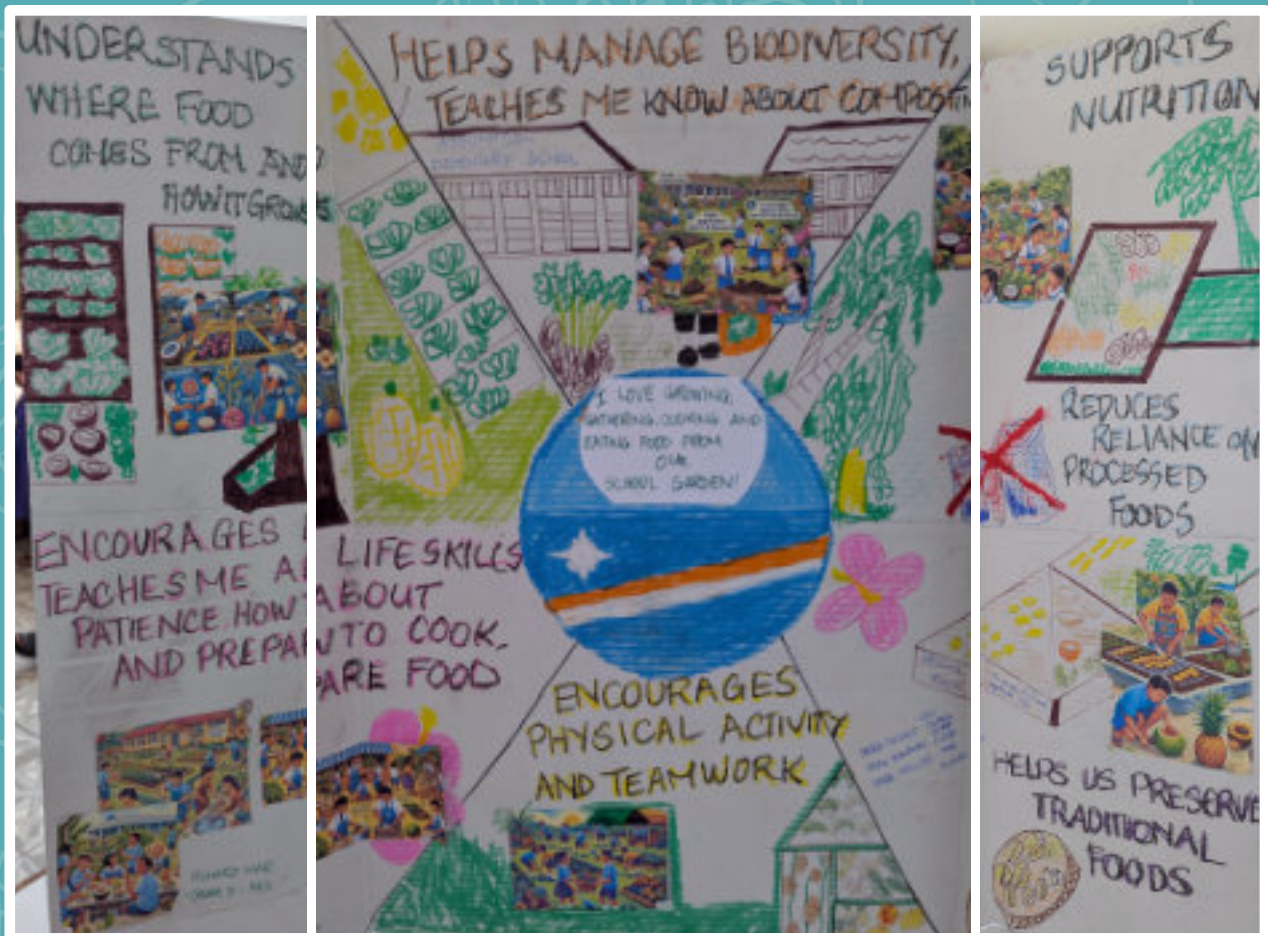 UNDERSTANDS
WHERE FOOD
COMES FROM AND
HOW IT GROWS
ENCOURAGES
TEACHES ME A
PATIENCE HOW
AND PREPAR
HELPS MANAGE BIODIVERSITY,
TEACHES ME KNOW ABOUT COMPOSTIN
I LOVE GROWING,
GATHERING, COOKING AND
EATING FOOD FROM
OUR
SCHOOL GARDEN!
LIFE SKILLS
ABOUT
TO COOK,
PARE FOOD
ENCOURAGES
PHYSICAL ACTIVITY
AND TEAMWORK
SUPPORTS
NUTRITION
REDUCES
RELIANCE ON
PROCESSED
FOODS
HELPS US PRESERVE
TRADITIONAL
FOODS